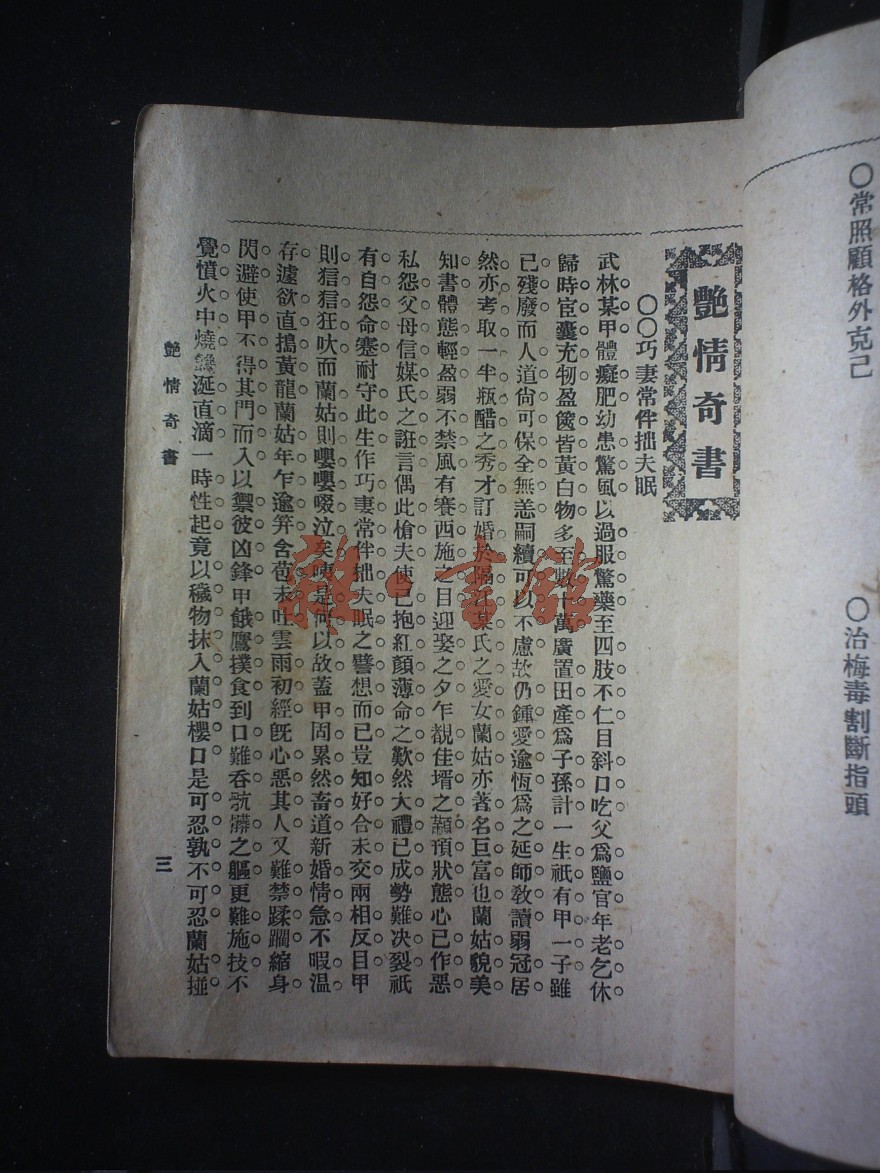 ○常照顧格外克己
○治梅毒割斷指頭
艷情奇書
○○巧妻常伴拙夫眠
武林某甲體癡肥幼患驚風以過服驚藥至四肢不仁目斜口吃父爲鹽官年老乞休
歸時宦囊充牣盈篋皆黃白物多至數十萬廣置田產爲子孫計一生祇有甲一子雖
已殘廢而人道尙可保全無恙嗣續可以不慮故仍鍾愛逾恆爲之延師敎讀弱冠居
然亦考取一半瓶醋之秀才訂婚於隔江某氏之愛女蘭姑亦著名巨富也蘭姑貌美
知書體態輕盈弱不禁風有賽西施之目迎娶之夕乍覩佳壻之顢頇狀態心已作惡
私怨父母信媒氏之誑言偶此槍夫使己抱紅顏薄命之歎然大禮已成勢難决裂祇
有自怨命蹇耐守此生作巧妻常伴拙夫眠之譬想而已豈知好合未交兩相反目甲
則狺狺狂吠而蘭姑則嚶嚶啜泣矣咦是何以故蓋甲固累然畜道新婚情急不暇溫
存遽欲直搗黃龍蘭姑年乍逾笄含苞未吐雲雨初經旣心惡其人又難禁蹂躙縮身
閃避使甲不得其門而入以禦彼凶鋒甲餓鷹撲食到口難吞骯髒之軀更難施技不
覺憤火中燒饞涎直滴一時性起竟以穢物抹入蘭姑櫻口是可忍孰不可忍蘭姑掽
艷情奇書
三
雜·書舘